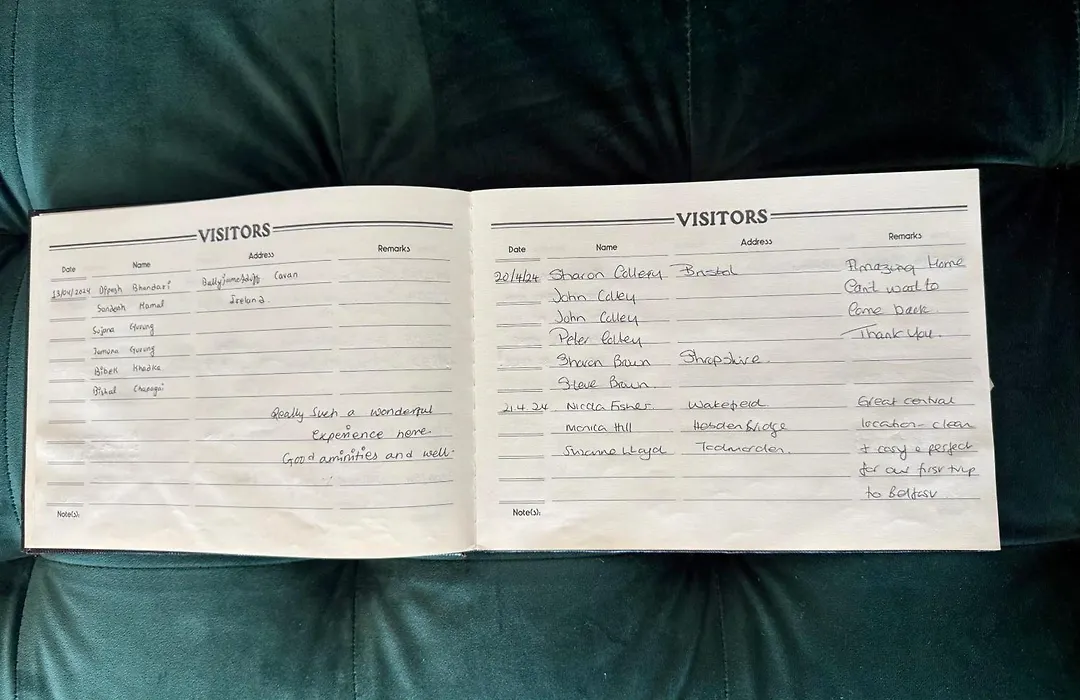 VISITORS
Date Name Address Remarks
13/04/2024 Dipesh Bhandari Ballyjamesduff Cavan
Sandesh Hamal Ireland.
Sujana Gurung
Jamuna Gurung
Bibek Khadka
Bishal Chapagai
Really Such a wonderful
experience here.
Good aminities and well.
Note(s):
VISITORS
Date Name Address Remarks
20/4/24 Sharon Collery Bristol Amazing Home
John Colley Cant wait to
John Colley Come back.
Peter Colley Thank You.
Sharon Brown Shropshire.
Steve Brown
21.4.24 Nicola Fisher. Wakefield Great central
Monica Hill Hebden Bridge location - clean
Lloyd Todmorden. + cosy & perfect
for our first trip
to Belfast.
Note(s):